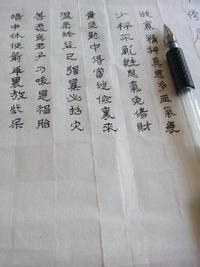 欲寡精神爽思多血氣衰
少杯不亂性忍氣免傷財
貴自勤中得富從儉裏來
溫柔終益己強暴必招災
善處真君子刁唆是禍胎
暗中休使箭乖裏放些呆